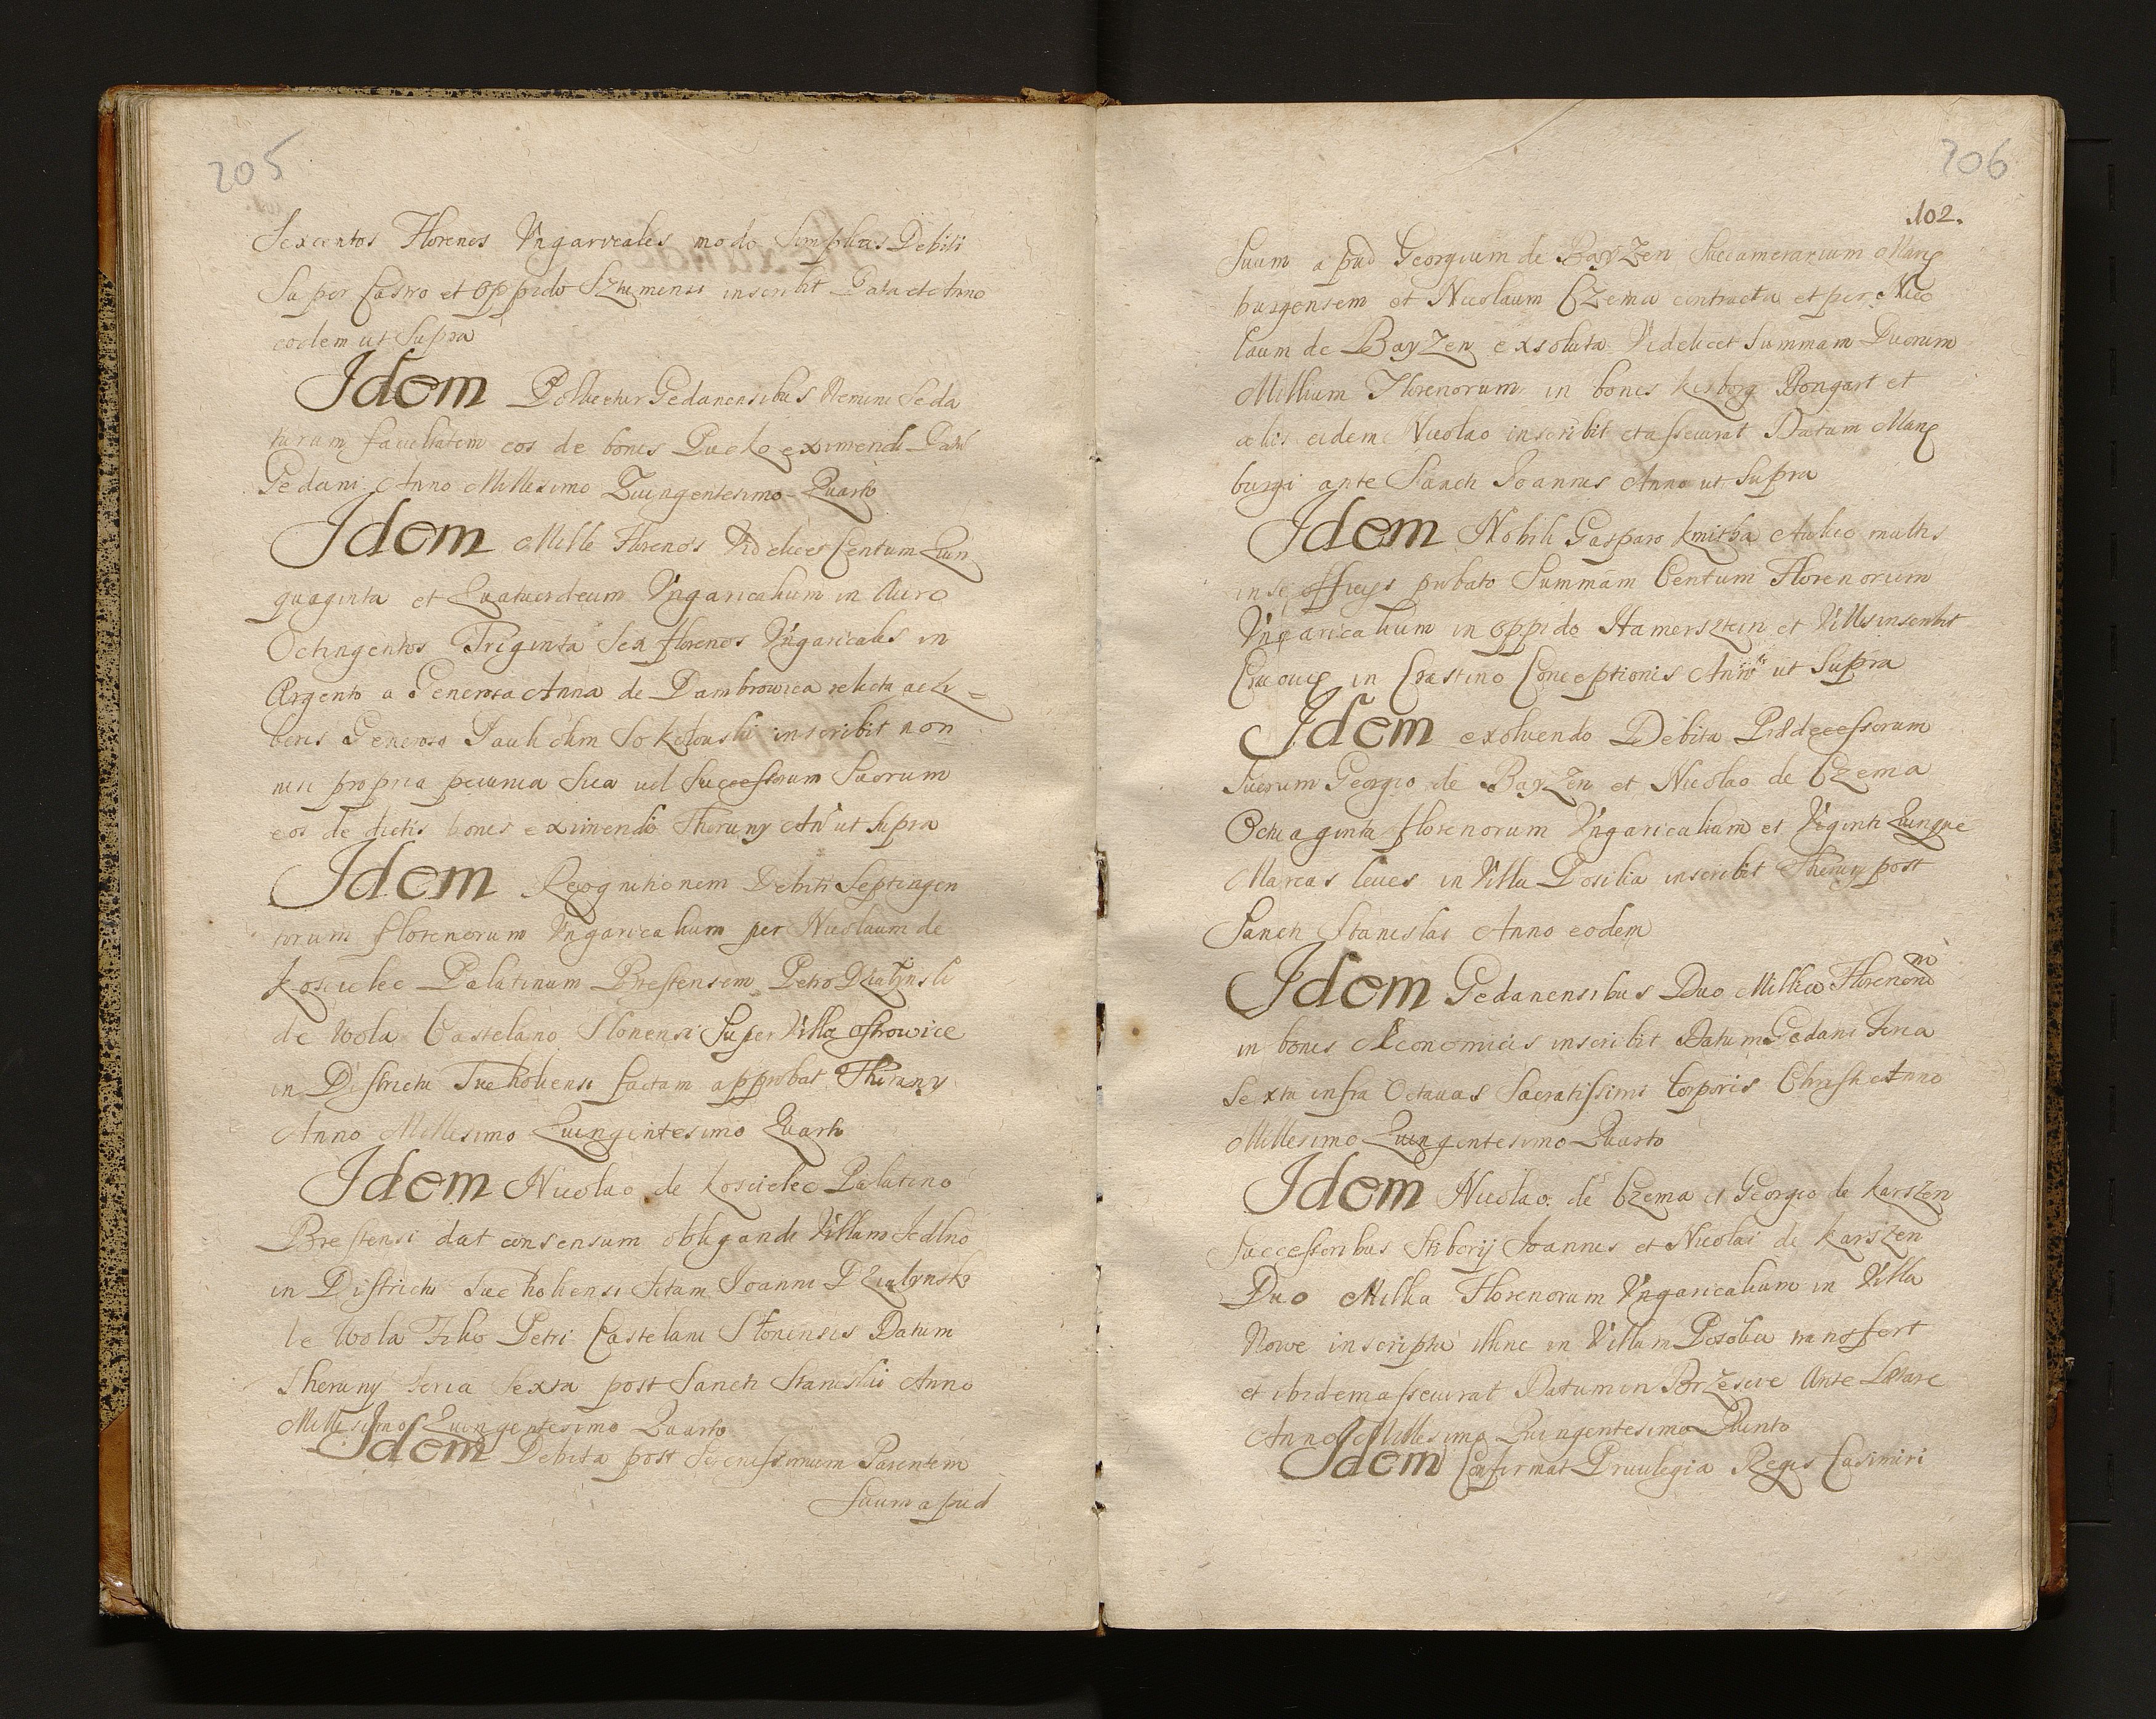 205
Sexcentos Florenos Vngaricales modo simplicis Debiti
Super Castro et Oppido Sztumensi inscribit Data et Anno
eodem ut Supra
Idem Pollicetur Gedanensibus Nemini se da
turum facultatem eos de bonis Pucko eximendi Datt
Gedani Anno Millesimo Quingentesimo Quarto
Idem Mille Florenos Videlicet Centum Quin
quaginta et Quatuordecim Vngaricalium in Auro
Octingentos Triginta Sex florenos Vngaricales in
Argento a Generosa Anna de Dambrowica relicta ac Li=
beris Generosi Pauli olim Sokolouski inscribit non
nisi propria pecunia Sua uel Successorum Suorum
eos de dictis bonis eximendi Thoruny An ut supra
Idem Recognitionem Debiti Septingen
torum florenorum Vngaricalium per Nicolaum de
Koscielec Palatinum Brestensem Petro Dzialynski
de Wola Castelano Slonensi Super Villa Ostrowice
in Districtu Tucholiensi factam approbat Thoruny
Anno Millesimo Quingentesimo Quarto
Idem Nicolao de Koscielec Palatino
Brestensi dat consensum obligandi Villam Jedlno
in Districtu Tucholiensi sitam Joanni Dzialynski
de Wola Filio Petri Castelani Slonensis Datum
Thoruny feria Sexta post Sancti Stanislai Anno
Millesimo Quingentesimo Quarto
Idem Debita post Serenissimum Parentem
Suum apud
206
102.
Suum apud Georgium de Bayzen Succamerarium Marie
burgensem et Nicolaum Czema contracta et per Nico
laum de Bayzen exsoluta Videlicet Summam Duorum
Millium Florenorum in bonis Kisborg Pongart et
aliis eidem Nicolao inscribit et assecurat Datum Marie
burgi ante Sancti Joannis Anno ut Supra
Idem Nobili Gasparo Kmitha Aulico multis
in se officys probato Summam Centum Florenorum
Vngaricalium in Oppido Hamersztein et Villis inscribit
Cracouie in Crastino Conceptionis Anno ut Supra
Idem exoluendo Debita Prædecessorum
Suorum Georgio de Bayzen et Nicolao de Czema
Octuaginta florenorum Vngaricalium et Viginti Quinque
Marcas leues in Villa Posilia inscribit Thoruny post
Sancti Stanislai Anno eodem
Idem Gedanensibus Duo Millia Florenorum
in bonis Æconomicis inscribit Datum Gedani Feria
Sexta infra Octauas Sacratissimi Corporis Christi Anno
Millesimo Quingentesimo Quarto
Idem Nicolao de Czema et Georgio de Karszen
Successoribus Stiborij Joannis et Nicolai de Karszen
Duo Millia Florenorum Vngaricalium in Villa
Nowe inscripta illinc in Villam Posolia transfert
et ibidem assecurat Datum in Brzescie Ante Lætare
Anno Millesimo Quingentesimo Quinto
Idem Confirmat Priuilegia Regis Casimiri